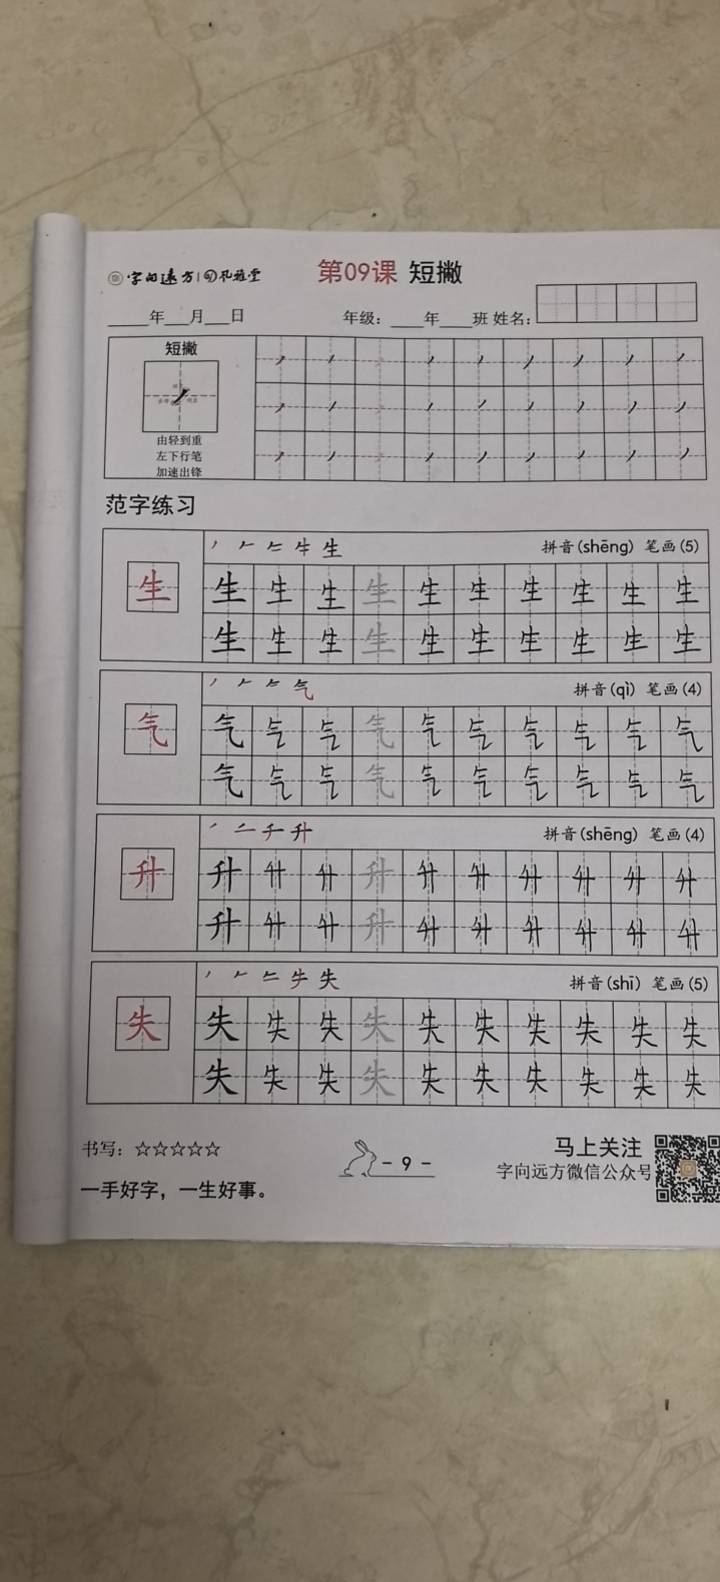 字向远方 孔雅堂 第09课 短撇
年 月 日 年级： 年 班 姓名：
短撇
由轻到重
左下行笔
加速出锋
范字练习
生 拼音(shēng) 笔画(5)
生 生 生 生 生 生 生 生 生 生 生
生 生 生 生 生 生 生 生 生 生
气 拼音(qì) 笔画(4)
气 气 气 气 气 气 气 气 气 气 气
气 气 气 气 气 气 气 气 气 气
升 拼音(shēng) 笔画(4)
升 升 升 升 升 升 升 升 升 升 升
升 升 升 升 升 升 升 升 升 升
失 拼音(shī) 笔画(5)
失 失 失 失 失 失 失 失 失 失 失
失 失 失 失 失 失 失 失 失 失
书写：☆☆☆☆☆
一手好字，一生好事。
- 9 -
马上关注
字向远方微信公众号